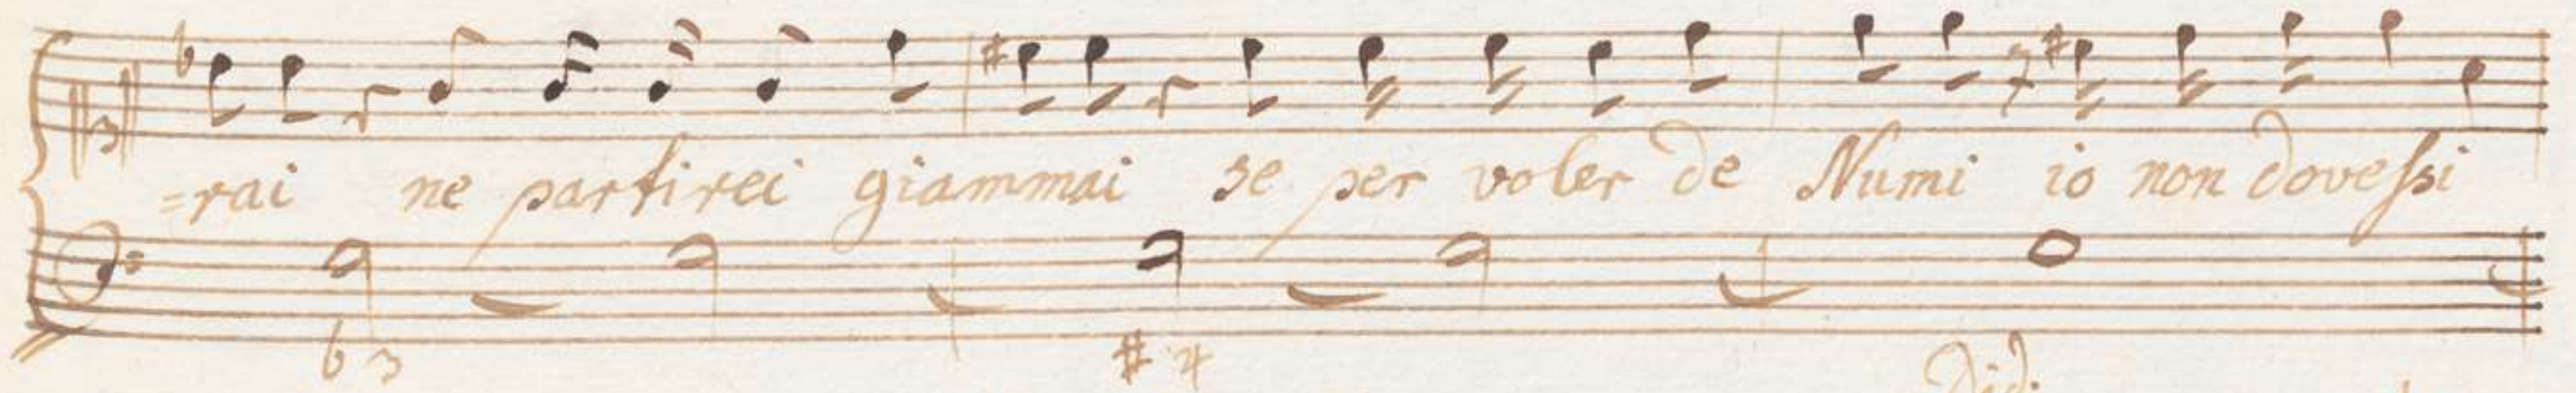 =rai ne partirei giammai se per voler de Numi io non dovessi
b 3 # 4
Did.